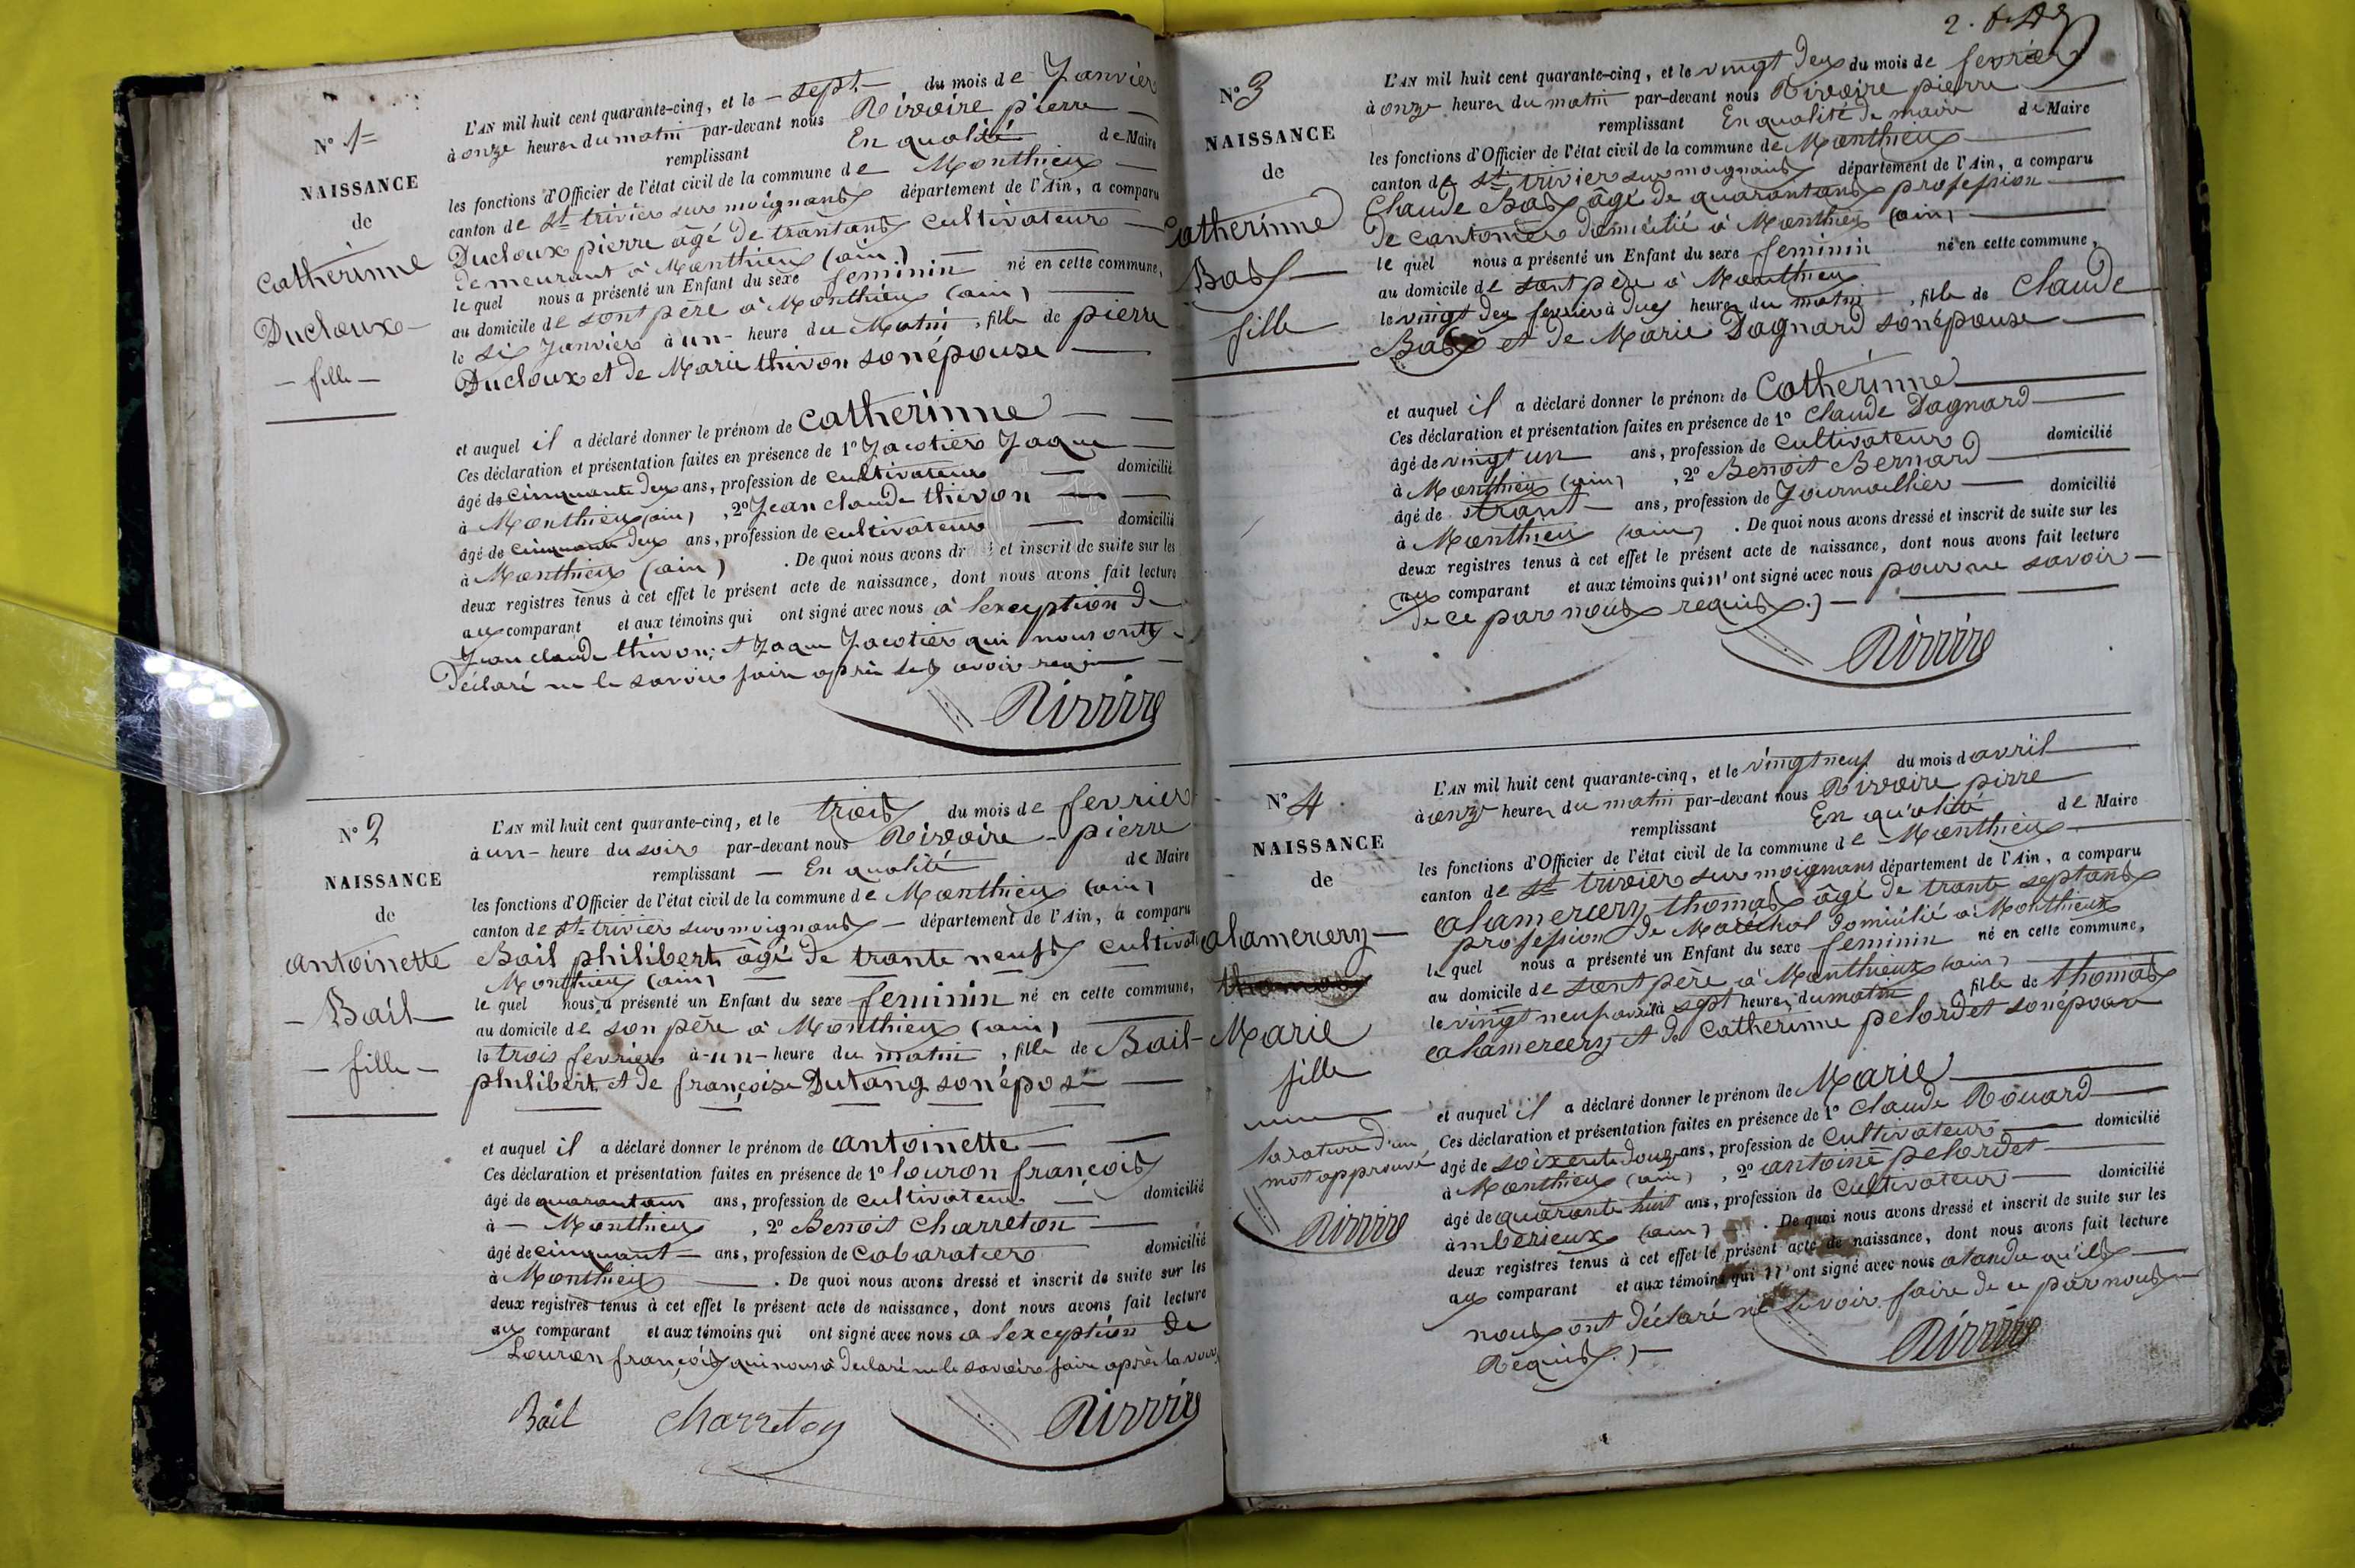 N° 1=
NAISSANCE
de
Catherinne
Ducloux
- fille -
L'AN mil huit cent quarante-cinq, et le - sept - du mois de Janvier
à onze heures du matin par-devant nous Rivoire pierre
remplissant En qualité de Maire
les fonctions d'Officier de l'état civil de la commune de Monthieux
canton de St trivier sur moignans département de l'Ain, a comparu
Ducloux pierre âgé de trantans cultivateur
demeurant à Monthieux (ain)
le quel nous a présenté un Enfant du sexe feminin né en cette commune,
au domicile de sont père à Monthieux (ain)
le six Janvier à un - heure du Matin, fille de pierre
Ducloux et de Marie thivon son épouse
et auquel il a déclaré donner le prénom de Catherinne
Ces déclaration et présentation faites en présence de 1° Jacotier Jaque
âgé de cinquante deux ans, profession de cultivateur domicilié
à Monthieux (ain), 2° Jean claude thivon
âgé de cinquante deux ans, profession de cultivateur domicilié
à Monthieux (ain). De quoi nous avons dr et inscrit de suite sur les
deux registres tenus à cet effet le présent acte de naissance, dont nous avons fait lecture
aux comparant et aux témoins qui ont signé avec nous à lexception de
Jean claude thivon; et Jaque Jacotier qui nous onts
déclaré ne le savoir faire après les avoir requis
Rivoire
N° 2
NAISSANCE
de
antoinette
- Bail
- fille -
L'AN mil huit cent quarante-cinq, et le trois du mois de fevrier
à un - heure du soir par-devant nous Rivoire - pierre
remplissant - En qualité de Maire
les fonctions d'Officier de l'état civil de la commune de Monthieux (ain)
canton de St trivier sur moignans - département de l'Ain, a comparu
Bail philibert âgé de trante neufs cultivat
Monthieux (ain)
le quel nous a présenté un Enfant du sexe feminin né en cette commune,
au domicile de son père à Monthieux (ain)
le trois fevrier à - un - heure du matin, fille de Bail -
philibert et de françoise Dutang son épose
et auquel il a déclaré donner le prénom de antoinette
Ces déclaration et présentation faites en présence de 1° louron françois
âgé de quarantans ans, profession de cultivateur domicilié
à - Monthieux, 2° Benoit Charreton
âgé de cinquant - ans, profession de cabaratier domicilié
à Monthieux. De quoi nous avons dressé et inscrit de suite sur les
deux registres tenus à cet effet le présent acte de naissance, dont nous avons fait lecture
aux comparant et aux témoins qui ont signé avec nous a lexception de
Louron françois qui nous à déclaré ne le savoire faire après la voir
Bail Charreton Rivoire
N° 3
NAISSANCE
de
Catherinne
Bas
fille
L'AN mil huit cent quarante-cinq, et le vingt deux du mois de fevrier
à onze heures du matin par-devant nous Rivoire pierre
remplissant En qualité de maire de Maire
les fonctions d'Officier de l'état civil de la commune de Monthieux
canton de St trivier sur moignans département de l'Ain, a comparu
Claude Bas âgé de quarantans profession
de cantonier domicilié à Monthieux (ain)
le quel nous a présenté un Enfant du sexe feminin né en cette commune,
au domicile de sont père à Monthieux
le vingt deux fevrier à deux heures du matin, fille de Claude
Bas et de Marie Dagnard son épouse
et auquel il a déclaré donner le prénom de Catherinne
Ces déclaration et présentation faites en présence de 1° Claude Dagnard
âgé de vingt un ans, profession de cultivateur domicilié
à Monthieux (ain), 2° Benoit Bernard
âgé de trant - ans, profession de Journallier domicilié
à Monthieux (ain). De quoi nous avons dressé et inscrit de suite sur les
deux registres tenus à cet effet le présent acte de naissance, dont nous avons fait lecture
aux comparant et aux témoins qui n' ont signé avec nous pour ne savoir
de ce par nous requis.)
Rivoire
N° 4
NAISSANCE
de
alamercery
thomas
Marie
fille
la rature d'un
mot approuvé
Rivoire
L'AN mil huit cent quarante-cinq, et le vingt neuf du mois d avril
à onze heures du matin par-devant nous Rivoire pirre
remplissant En qualité de Maire
les fonctions d'Officier de l'état civil de la commune de Monthieux
canton de St trivier sur moignans département de l'Ain, a comparu
alamercery thomas âgé de trante septans
profession de Maréchal domicilié à Monthieux
le quel nous a présenté un Enfant du sexe feminin né en cette commune,
au domicile de sont père à Monthieux (ain)
le vingt neuf avril à sept heures du matin, fille de thomas
alamercery et de Catherinne pelordet son épouse
et auquel il a déclaré donner le prénom de Marie
Ces déclaration et présentation faites en présence de 1° Claude Rouard
âgé de soixente douze ans, profession de Cultivateur domicilié
à Monthieux (ain), 2° antoine pelordet
âgé de quarante huit ans, profession de Cultivateur domicilié
à mberieux (ain). De quoi nous avons dressé et inscrit de suite sur les
deux registres tenus à cet effet le présent acte de naissance, dont nous avons fait lecture
aux comparant et aux témoins qui n' ont signé avec nous atandu qu'ils
nous ont déclaré ne savoir faire de ce par nous
Requis.)
Rivoire